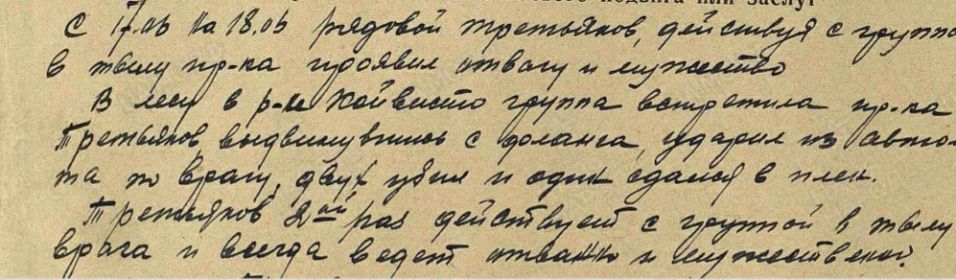 подвига или заслуг
С 17.06 на 18.06 рядовой Третьяков, действуя с группо
в тылу пр-ка проявил отвагу и мужество
В лесу в р-не Койвисто группа встретила пр-ка
Третьяков, выдвинувшись с фланга, ударил из автом-
та по врагу, двух убил и один сдался в плен.
Третьяков 2ой раз действует с группой в тылу
врага и всегда ведет отважно и мужественно.